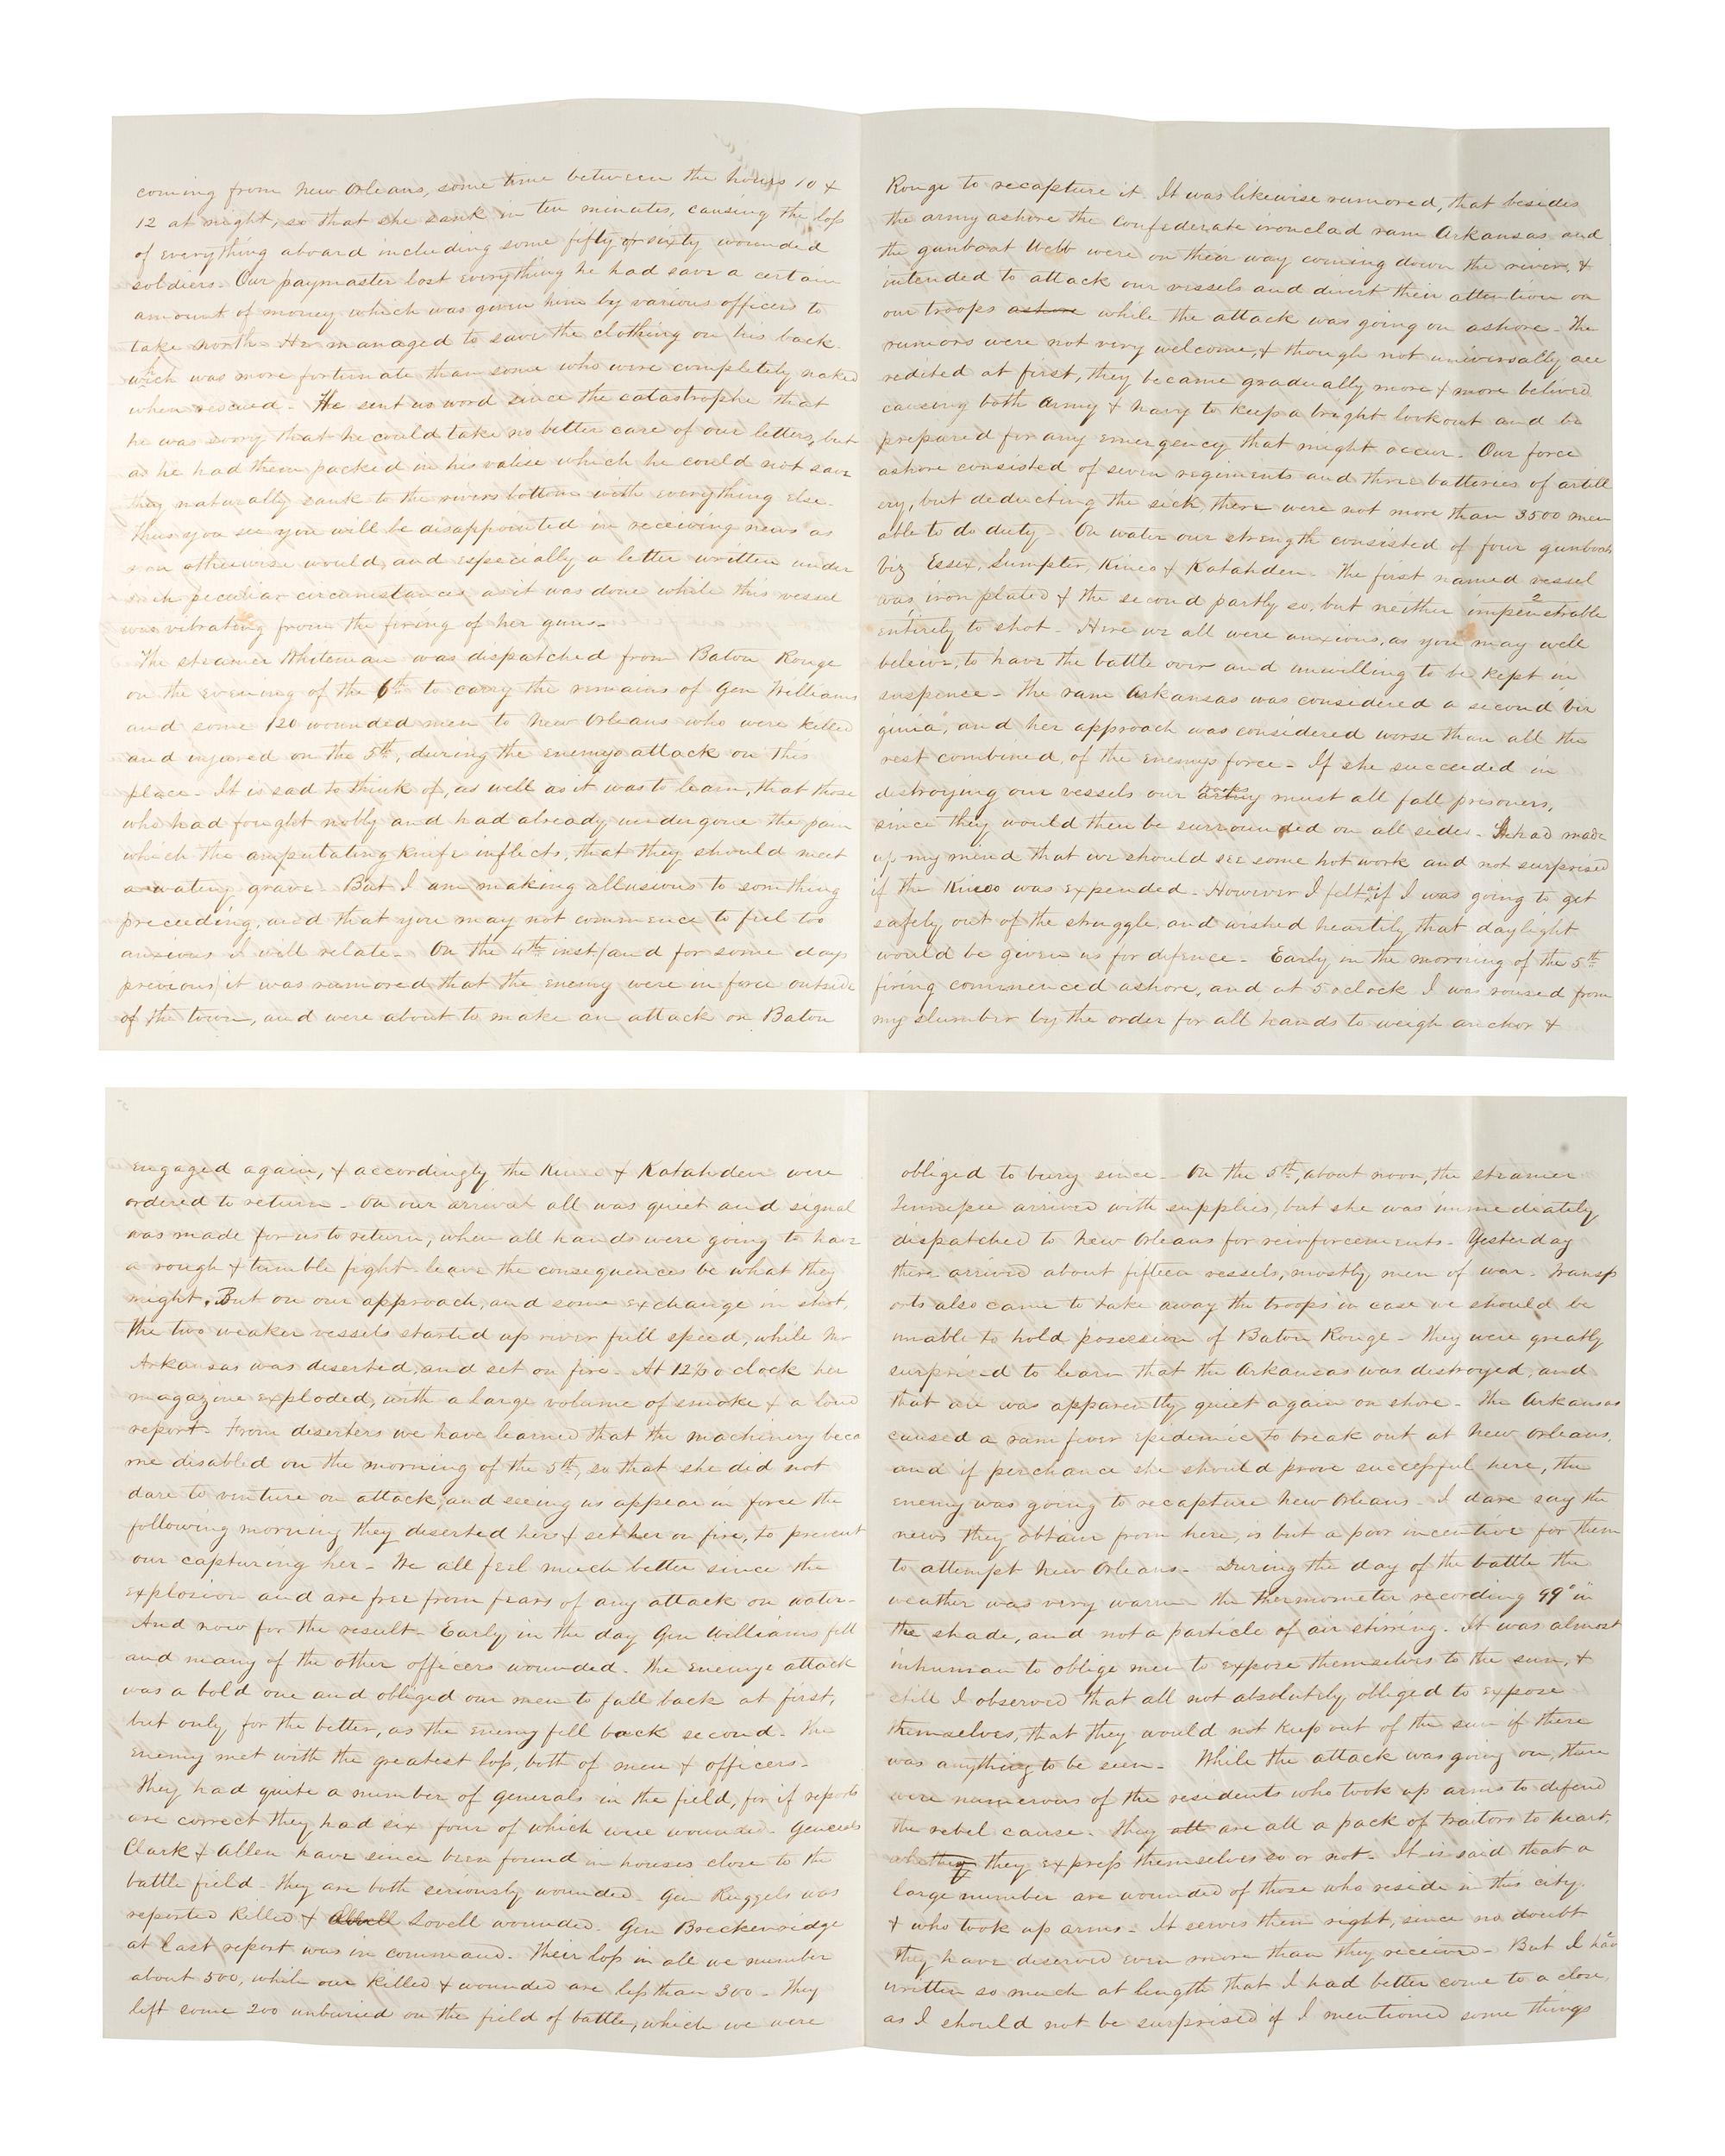 coming from New Orleans, some time between the hours 10 &
12 at night, so that she sank in ten minutes, causing the loss
of everything aboard including some fifty or sixty wounded
soldiers. Our paymaster lost everything he had save a certain
amount of money which was given him by various officers to
take North. He managed to save the clothing on his back
which was more fortunate than some who were completely naked
when rescued - He sent us word since the catastrophe that
he was sorry that he could take no better care of our letters, but
as he had them packed in his valise which he could not save
they naturally sank to the rivers bottom with everything else.
Thus you see you will be disappointed in receiving news as
soon otherwise would, and especially a letter written under
such peculiar circumstances as it was done while this vessel
was vibrating from the firing of her guns -
The steamer Whiteman was dispatched from Baton Rouge
on the evening of the 6th to carry the remains of Gen Williams
and some 120 wounded men to New Orleans who were killed
and injured on the 5th, during the enemys attack on this
place - It is sad to think of, as well as it was to learn, that those
who had fought nobly and had already undergone the pain
which the amputating knife inflects, that they should meet
a watery grave - But I am making allusions to something
preceeding, and that you may not commence to feel too
anxious I will relate - On the 4th inst (and for some days
previous) it was rumored that the enemy were in force outside
of the town, and were about to make an attack on Baton
Rouge to recapture it. It was likewise rumored, that besides
the army ashore the Confederate ironclad ram Arkansas and
the gunboat Webb were on their way coming down the river, &
intended to attack our vessels and divert their attention on
our troops ashore while the attack was going on ashore - The
rumors were not very welcome, & though not universally acc
redited at first, they became gradually more & more belived
causing both Army & Navy to keep a bright lookout and be
prepared for any emergency that might occur - Our force
ashore consisted of seven regiments and three batteries of artill
ery, but deducting the sick, there were not more than 3500 men
able to do duty - On water our strength consisted of four gunboats
viz Essex, Sumpter, Kineo & Katahden - The first named vessel
was iron plated & the second partly so, but neither impenetrable
entirely to shot - Here we all were anxious, as you may well
beleive, to have the battle over and unwilling to be kept in
suspence - The ram Arkansas was considered a second Vir
ginia, and her approach was considered worse than all the
rest combined, of the enemys force - If she succeeded in
destroying our vessels our troops must all fall prisoners,
since they would then be surrounded on all sides - I had made
up my mind that we should see some hot work and not surprised
if the Kineo was expended - However I felt as if I was going to get
safely out of the struggle, and wished heartily that daylight
would be given us for defence - Early in the morning of the 5th
firing commenced ashore, and at 5 oclock I was roused from
my slumber by the order for all hands to weigh anchor &
engaged again, & accordingly the Kineo & Katahden were
ordered to return - On our arrival all was quiet and signal
was made for us to return, when all hands were going to have
a rough & tumble fight - leave the consequences be what they
might. But on our approach, and some exchange in shot,
the two weaker vessels started up river full speed, while the
Arkansas was deserted, and set on fire - At 12.30 oclock her
magazine exploded, with a large volume of smoke & a loud
report - From deserters we have learned that the machinery beca
me disabled on the morning of the 5th, so that she did not
dare to venture on attack, and seeing us appear in force the
following morning they deserted her & set her on fire, to prevent
our capturing her - We all feel much better since the
explosion and are free from fears of any attack on water -
And now for the result - Early in the day Gen Williams fell
and many of the other officers wounded. The enemys attack
was a bold one and obliged our men to fall back at first,
but only for the better, as the enemy fell back second - The
enemy met with the greatest loss, both of men & officers -
They had quite a number of generals in the field, for if reports
are correct they had six four of which were wounded - Generals
Clark & Allen have since been found in houses close to the
battle field - They are both seriously wounded. Gen Ruggels was
reported killed & Lovell wounded. Gen Breckenridge
at last report was in command. Their loss in all we number
about 500, while our killed & wounded are less than 300 - They
left some 200 unburied on the field of battle, which we were
obliged to bury since - On the 5th, about noon, the steamer
Tennessee arrived with supplies, but she was immediately
dispatched to New Orleans for reinforcements - Yesterday
there arrived about fifteen vessels, mostly men of war - Transp
orts also came to take away the troops in case we should be
unable to hold posession of Baton Rouge - They were greatly
surprised to learn that the Arkansas was destroyed, and
that all was apparently quiet again on shore - The Arkansas
caused a ram fever epidemic to break out at New Orleans,
and if perchance she should prove successful here, the
enemy was going to recapture New Orleans - I dare say the
news they obtain from here, is but a poor incentive for them
to attempt New Orleans - During the day of the battle the
weather was very warm the thermometer recording 99° in
the shade, and not a particle of air stirring. It was almost
inhuman to oblige men to expose themselves to the sun, &
still I observed that all not absolutely obliged to expose
themselves, that they would not keep out of the sun if there
was anything to be seen - While the attack was going on, there
were numerous of the residents who took up arms to defend
the rebel cause - They all are all a pack of traitors to heart,
whether they express themselves so or not - It is said that a
large number are wounded of those who reside in this city
& who took up arms - It serves them right, since no doubt
they have deserved even more than they received - But I have
written so much at length that I had better come to a close,
as I should not be surprised if I mentioned some things